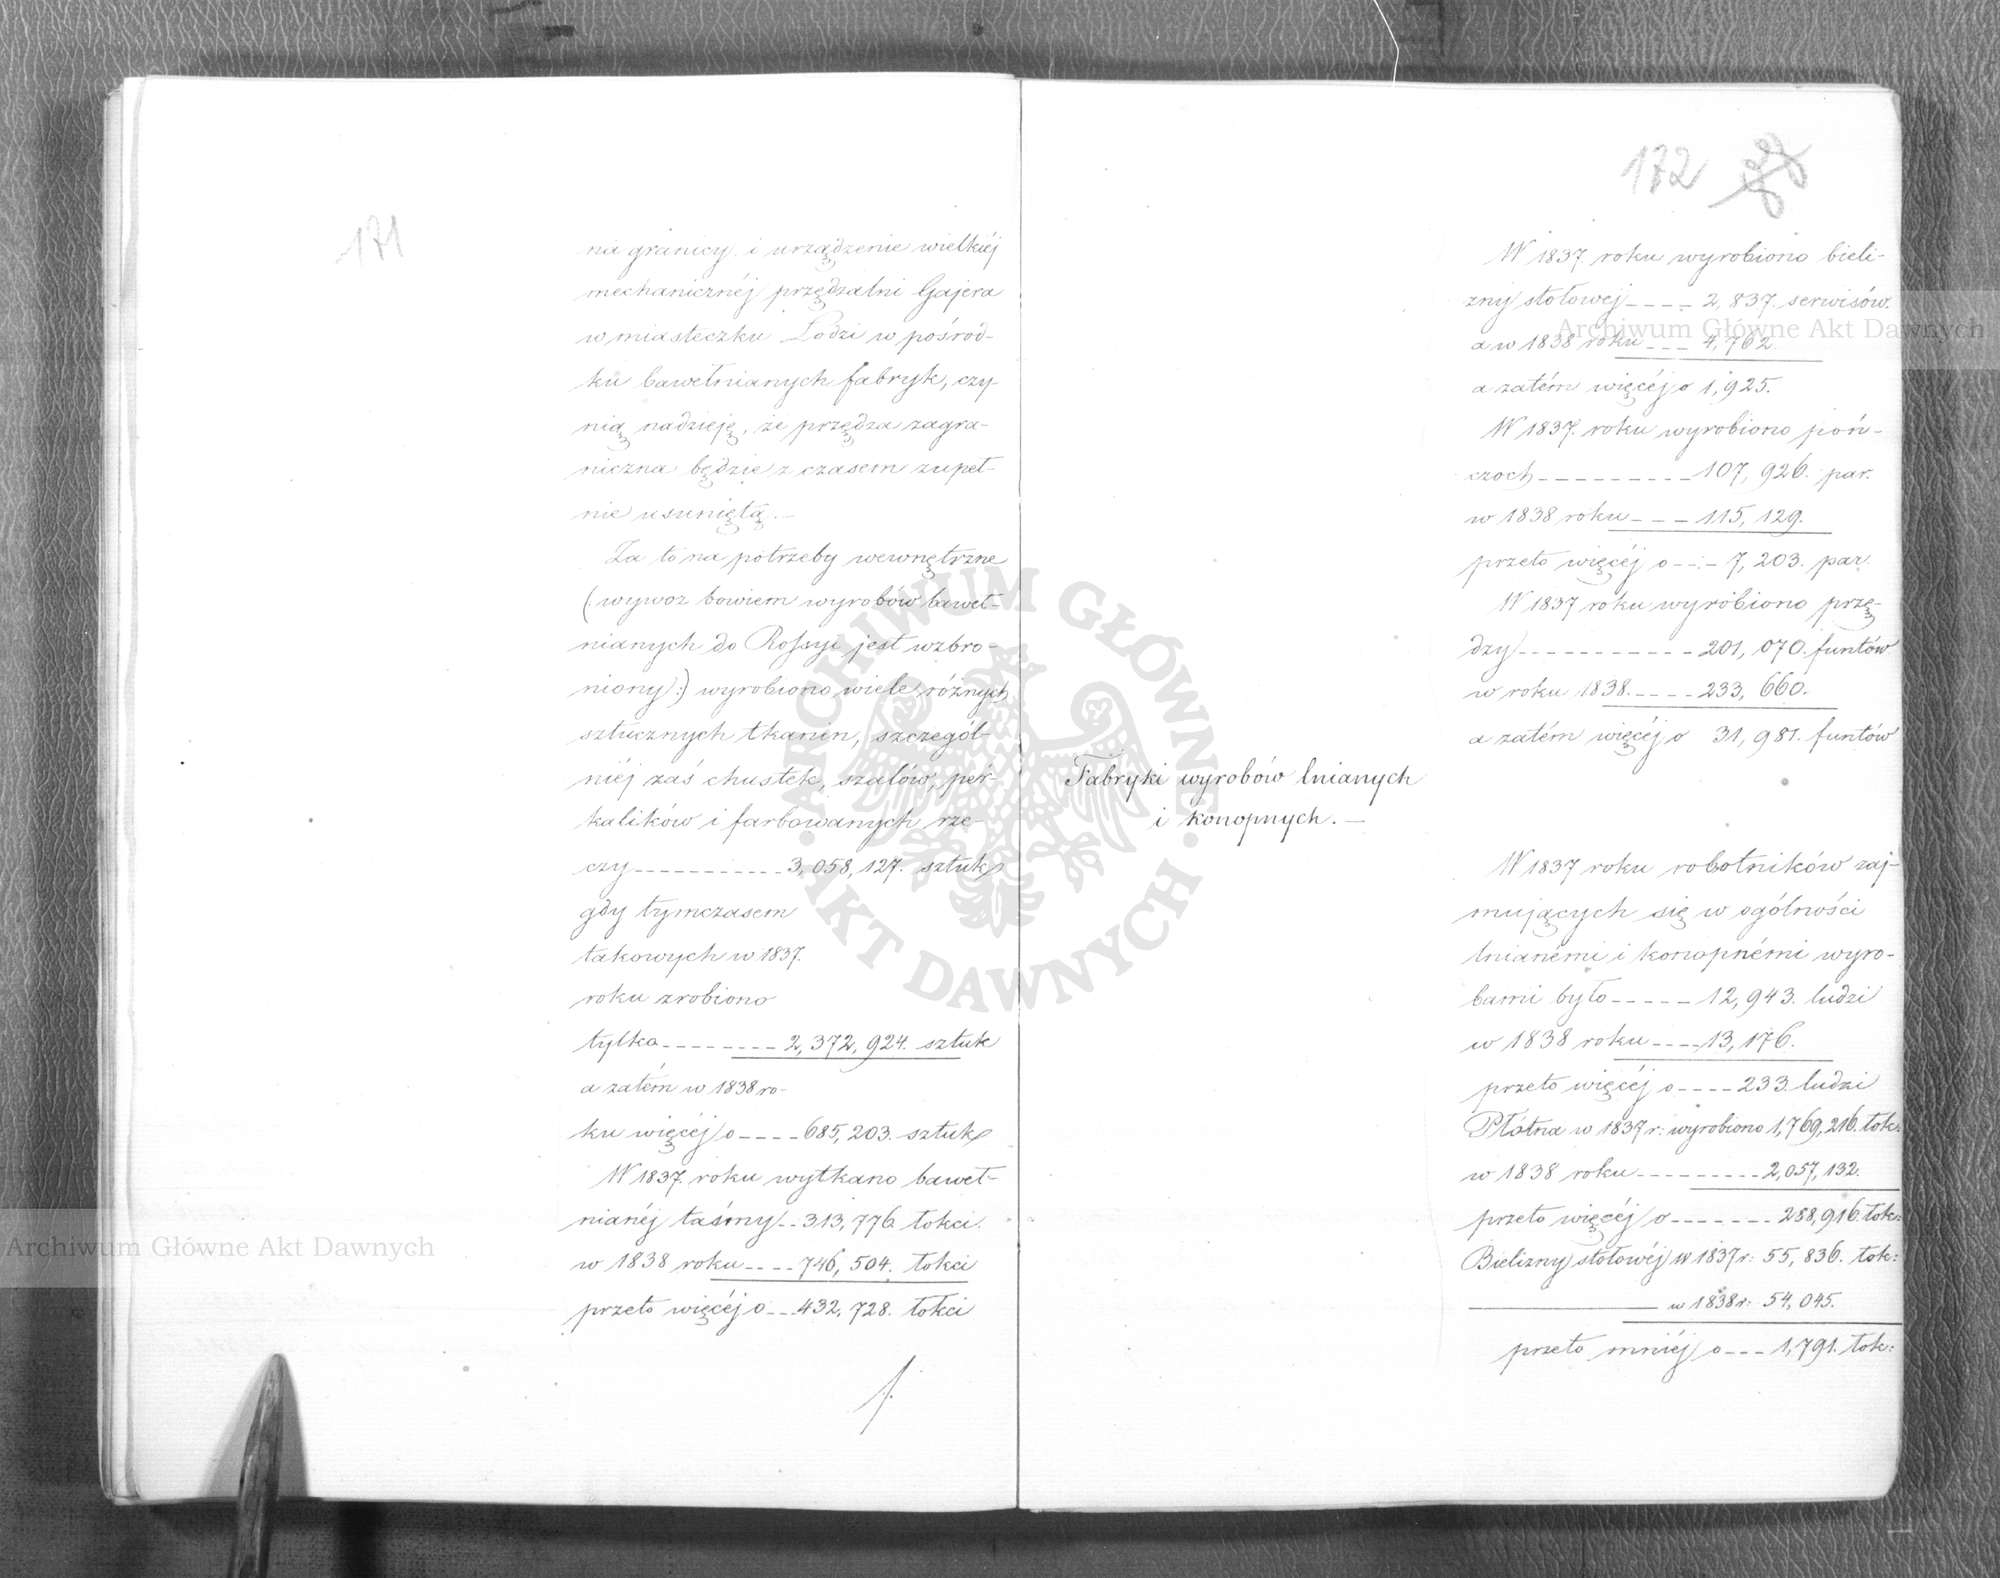 171
na granicy i urządzenie wielkiéj
mechanicznéj przędzalni Gajera
w miasteczku Łodzi w pośrod-
ku bawełnianych fabryk, czy-
nią nadzieję, że przędza zagra-
niczna będzie z czasem zupeł-
nie usuniętą.—
Za to na potrzeby wewnętrzne
(: wywoz bowiem wyrobów baweł-
nianych do Rossyi jest wzbro-
niony :) wyrobiono wiele różnych
sztucznych tkanin, szczegól-
niéj zaś chustek, szalów, per-
kalików i farbowanych rze-
czy ----------- 3,058,127. sztuk
gdy tymczasem
takowych w 1837.
roku zrobiono
tylko -------- 2,372,924. sztuk
a zatém w 1838 ro-
ku więcéj o ---- 685,203. sztuk
W 1837. roku wytkano baweł-
nianéj taśmy -- 313,776. łokci.
w 1838 roku ---- 746,504. łokci
przeto więcéj o --- 432,728. łokci
172
W 1837. roku wyrobiono bieli-
zny stołowej ---- 2,837. serwisów.
a w 1838 roku --- 4,762.
a zatém więcéj o 1,925.
W 1837. roku wyrobiono poń-
czoch ---------- 107,926. par.
w 1838 roku --- 115,129.
przeto więcéj o -:- 7,203. par.
W 1837 roku wyrobiono przę-
dzy ----------- 201,070. funtów
w roku 1838. ---- 233,660.
a zatém więcéj o 31,981. funtów
Fabryki wyrobów lnianych
i konopnych.—
W 1837 roku robotników zaj-
mujących się w ogólności
lnianémi i konopnémi wyro-
bami było ----- 12,943. ludzi
w 1838 roku ---- 13,176.
przeto więcéj o ---- 233. ludzi
Płótna w 1837 r: wyrobiono 1,769,216. łok:
w 1838 roku --------- 2,057,132.
przeto więcéj o ------- 288,916. łok:
Bielizny stołowéj w 1837 r: 55,836. łok:
——— w 1838 r: 54,045.
przeto mniéj o --- 1,791. łok:
Archiwum Główne Akt Dawnych
Archiwum Główne Akt Dawnych
ARCHIWUM GŁÓWNE AKT DAWNYCH